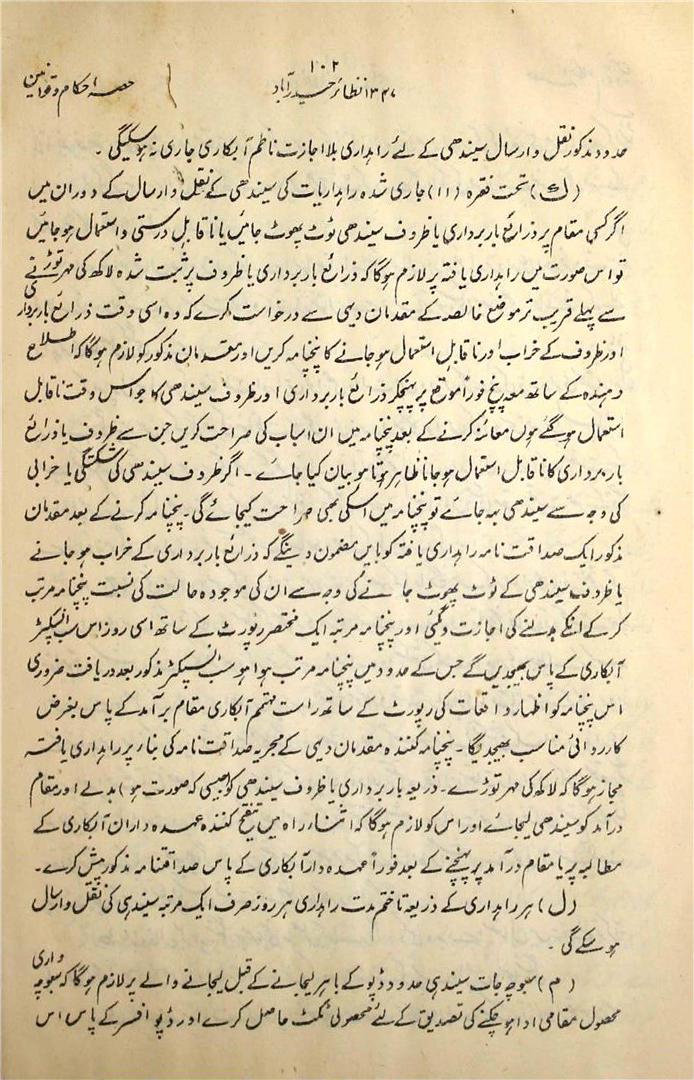 ۱۰۲
۱۳۴۷ نظائر حیدرآباد
حصہ احکام و قوانین
حدود مذکور نقل و ارسال سیندھی کے لئے راہداری بلا اجازت ناظم آبکاری جاری نہ ہو سکیگی ۔
(ک) تحت فقرہ (۱۱) جاری شدہ راہداریات کی سیندھی کے نقل و ارسال کے دوران میں
اگر کسی مقام پر ذرائع باربرداری یا ظروف سیندھی ٹوٹ پھوٹ جائیں یا ناقابل درستی و استعمال ہو جائیں
تو اس صورت میں راہداری یافتہ پر لازم ہوگا کہ ذرائع باربرداری یا ظروف پر ثبت شدہ لاکھ کی مہر توڑنے
سے پہلے قریب تر موضع خالصہ کے مقدمان دیہی سے درخواست کرے کہ وہ اسی وقت ذرائع باربرداری
اور ظروف کے خراب اور ناقابل استعمال ہو جانے کا پنچنامہ کریں اور مقدمان مذکور کو لازم ہوگا کہ اطلاع
دہندہ کے ساتھ معہ پنچ فوراً موقع پر پہنچکر ذرائع باربرداری اور ظروف سیندھی کا جو اس وقت ناقابل
استعمال ہو گئے ہوں معائنہ کرنے کے بعد پنچنامہ میں ان اسباب کی صراحت کریں جن سے ظروف یا ذرائع
باربرداری کا ناقابل استعمال ہو جانا ظاہر ہوتا ہو بیان کیا جائے ۔ اگر ظروف سیندھی کی شکستگی یا خرابی
کی وجہ سے سیندھی بہہ جائے تو پنچنامہ میں اسکی بھی صراحت کیجائے گی ۔ پنچنامہ کرنے کے بعد مقدمان
مذکور ایک صداقت نامہ راہداری یافتہ کو بایں مضمون دینگے کہ ذرائع باربرداری کے خراب ہو جانے
یا ظروف سیندھی کے ٹوٹ پھوٹ جانے کی وجہ سے ان کی موجودہ حالت کی نسبت پنچنامہ مرتب
کر کے انکے بدلنے کی اجازت دیگئی اور پنچنامہ مرتبہ ایک مختصر رپورٹ کے ساتھ اسی روز اس سب انسپکٹر
آبکاری کے پاس بھیجدیں گے جس کے حدود میں پنچنامہ مرتب ہوا ہو سب انسپکٹر مذکور بعد دریافت ضروری
اس پنچنامہ کو اظہار واقعات کی رپورٹ کے ساتھ راست مہتمم آبکاری مقام برآمد کے پاس بغرض
کارروائی مناسب بھیجدیگا ۔ پنچنامہ کنندہ مقدمان دیہی کے مجریہ صداقت نامہ کی بناء پر راہداری یافتہ
مجاز ہوگا کہ لاکھ کی مہر توڑے ۔ ذریعہ باربرداری یا ظروف سیندھی کو (جیسی کہ صورت ہو) بدلے اور مقام
درآمد کو سیندھی لیجائے اور اس کو لازم ہوگا کہ اثناء راہ میں تنقیح کنندہ عہدہ داران آبکاری کے
مطالبہ پر یا مقام درآمد پر پہنچنے کے بعد فوراً عہدہ دار آبکاری کے پاس صداقتنامہ مذکور پیش کرے ۔
(ل) ہر راہداری کے ذریعہ تا ختم مدت راہداری ہر روز صرف ایک مرتبہ سیندہی کی نقل و ارسال
ہو سکے گی ۔
(م) سبوچہ جات سیندہی حدود ڈپو کے باہر لیجانے کے قبل لیجانے والے پر لازم ہوگا کہ سبوچہ واری
محصول مقامی ادا ہو چکنے کی تصدیق کے لئے محصولی ٹکٹ حاصل کرے اور ڈپو افسر کے پاس اس